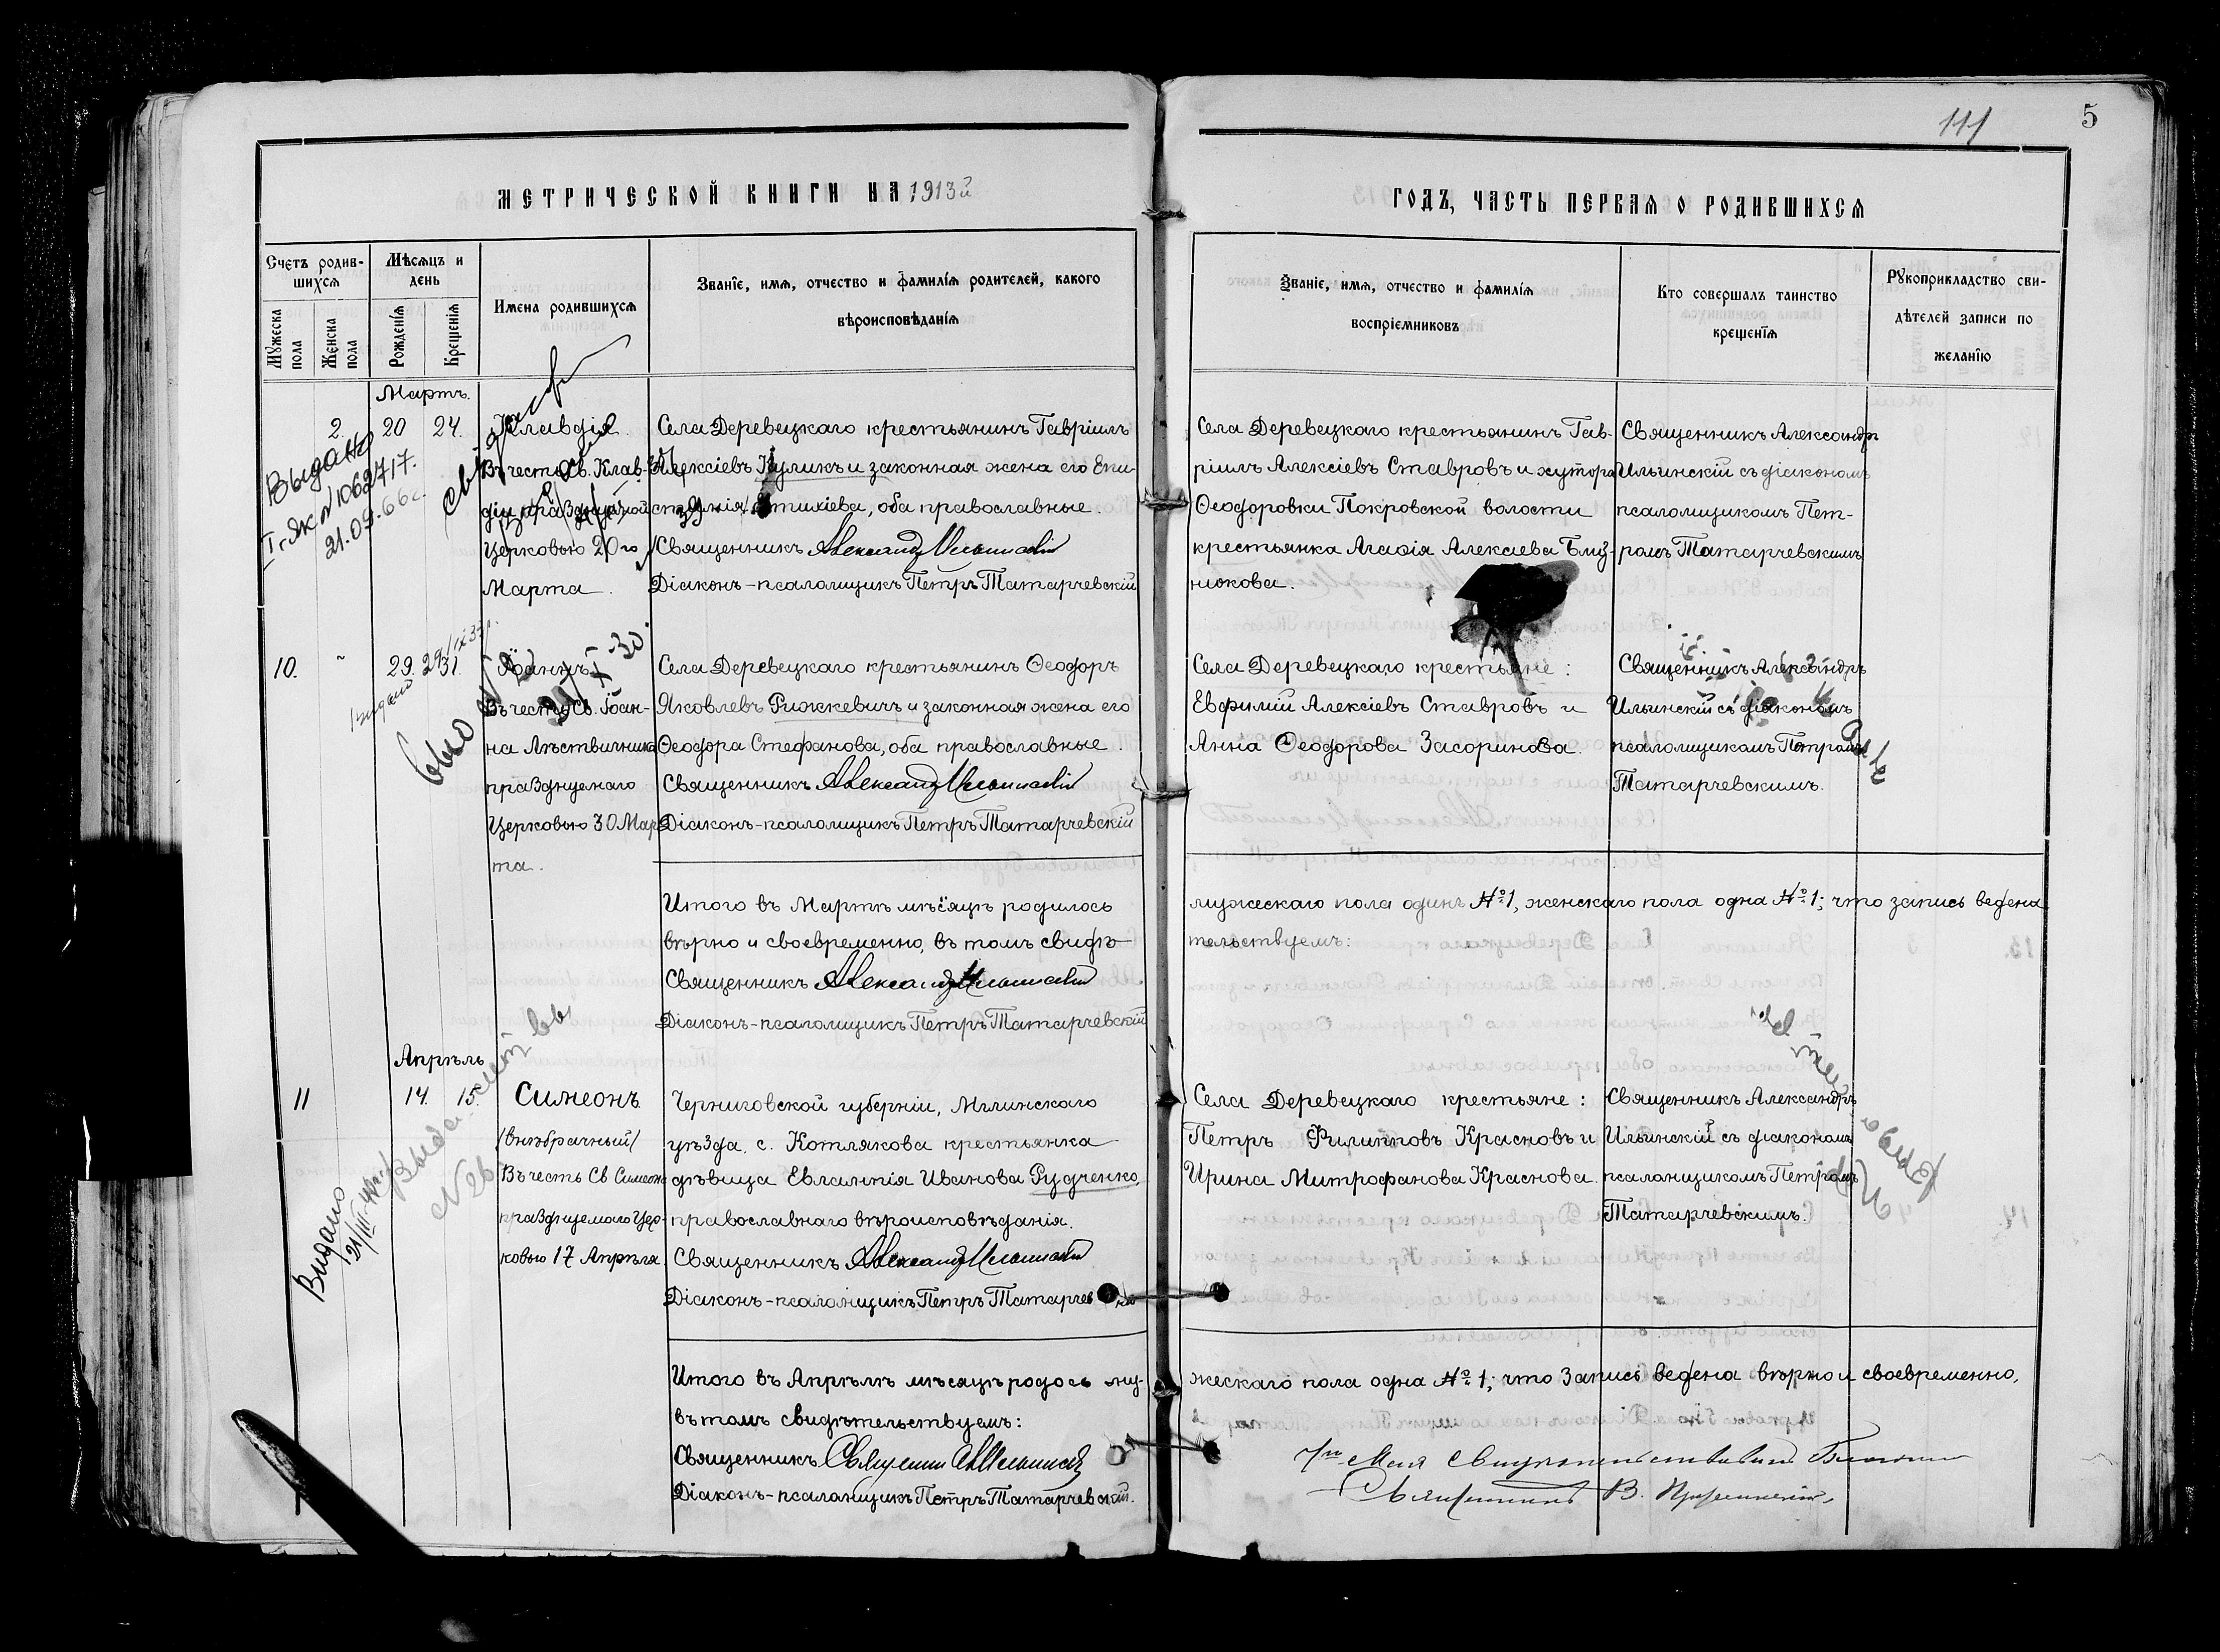 111
5
МЕТРИЧЕСКОЙ КНИГИ НА 1913й
ГОДЪ, ЧАСТЬ ПЕРВАЯ О РОДИВШИХСЯ
Счетъ родив-
шихся
Мужеска
пола
Женска
пола
Мѣсяцъ и
день
Рожденія
Крещенія
Имена родившихся
Званіе, имя, отчество и фамилія родителей, какого
вѣроисповѣданія
Званіе, имя, отчество и фамилія
воспріемниковъ
Кто совершалъ таинство
крещенія
Рукоприкладство сви-
дѣтелей записи по
желанію
Мартъ.
2. 20 24.
Клавдія.
Въ честь Св. Клав-
діи празднуемой
Церковью 20го
Марта.
Села Деревецкаго крестьянинъ Гавріилъ
Алексіевъ Куликъ и законная жена его Епи-
стимія Евтихіева, оба православные.
Священникъ Александръ Ильинскій
Діаконъ-псаломщикъ Петръ Татарчевскій
Села Деревецкаго крестьянинъ Гав-
ріилъ Алексіевъ Ставровъ и хутора
Ѳеодоровки Покровской волости
крестьянка Агаѳія Алексіева Близ-
нюкова.
Священникъ Александръ
Ильинскій съ діакономъ
псаломщикомъ Пет-
ромъ Татарчевскимъ
Выдано
I-ЯК № 1062717.
21.09.66г.
10. " 29. 31.
Іоаннъ
Въ честь Св. Іоан-
на Лѣствичника
празднуемаго
Церковью 30 Мар-
та.
Села Деревецкаго крестьянинъ Ѳеодоръ
Яковлевъ Рижкевичъ и законная жена его
Ѳеодора Стефанова, оба православные.
Священникъ Александръ Ильинскій
Діаконъ-псаломщикъ Петръ Татарчевскій
Села Деревецкаго крестьяне:
Евфимій Алексіевъ Ставровъ и
Анна Ѳеодорова Засоринова.
Священникъ Александръ
Ильинскій съ діакономъ
псаломщикомъ Петромъ
Татарчевскимъ.
Итого въ Мартѣ мѣсяцѣ родилось
мужескаго пола одинъ №1, женскаго пола одна №1; что запись ведена
вѣрно и своевременно, въ томъ свидѣ-
тельствуемъ:
Священникъ Александръ Ильинскій
Діаконъ-псаломщикъ Петръ Татарчевскій
Апрѣль
11 14. 15.
Симеонъ
/внѣбрачный/
Въ честь Св Симеона
празднуемаго Цер-
ковью 17 Апрѣля.
Черниговской губерніи, Мглинскаго
уѣзда, с. Котлякова крестьянка
дѣвица Евлампія Иванова Рудченко,
православнаго вѣроисповѣданія.
Священникъ Александръ Ильинскій
Діаконъ-псаломщикъ Петръ Татарчевскій
Села Деревецкаго крестьяне:
Петръ Филипповъ Красновъ и
Ирина Митрофанова Краснова.
Священникъ Александръ
Ильинскій съ діакономъ
псаломщикомъ Петромъ
Татарчевскимъ.
Видано
Итого въ Апрѣлѣ мѣсяцѣ родось му-
жескаго пола одна №1; что запись ведена вѣрно и своевременно,
въ томъ свидѣтельствуемъ:
Священникъ
Діаконъ-псаломщикъ Петръ Татарчевскій.
Мая свидѣтельствовалъ
Священникъ В.